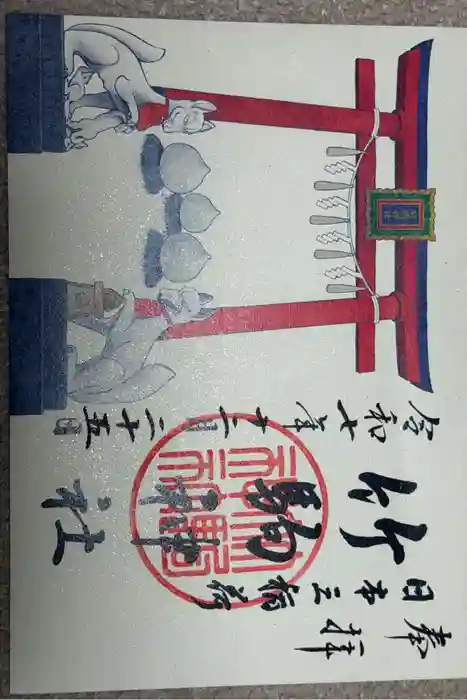 奉拝
日本三稲荷
竹駒神社
令和七年十一月二十五日